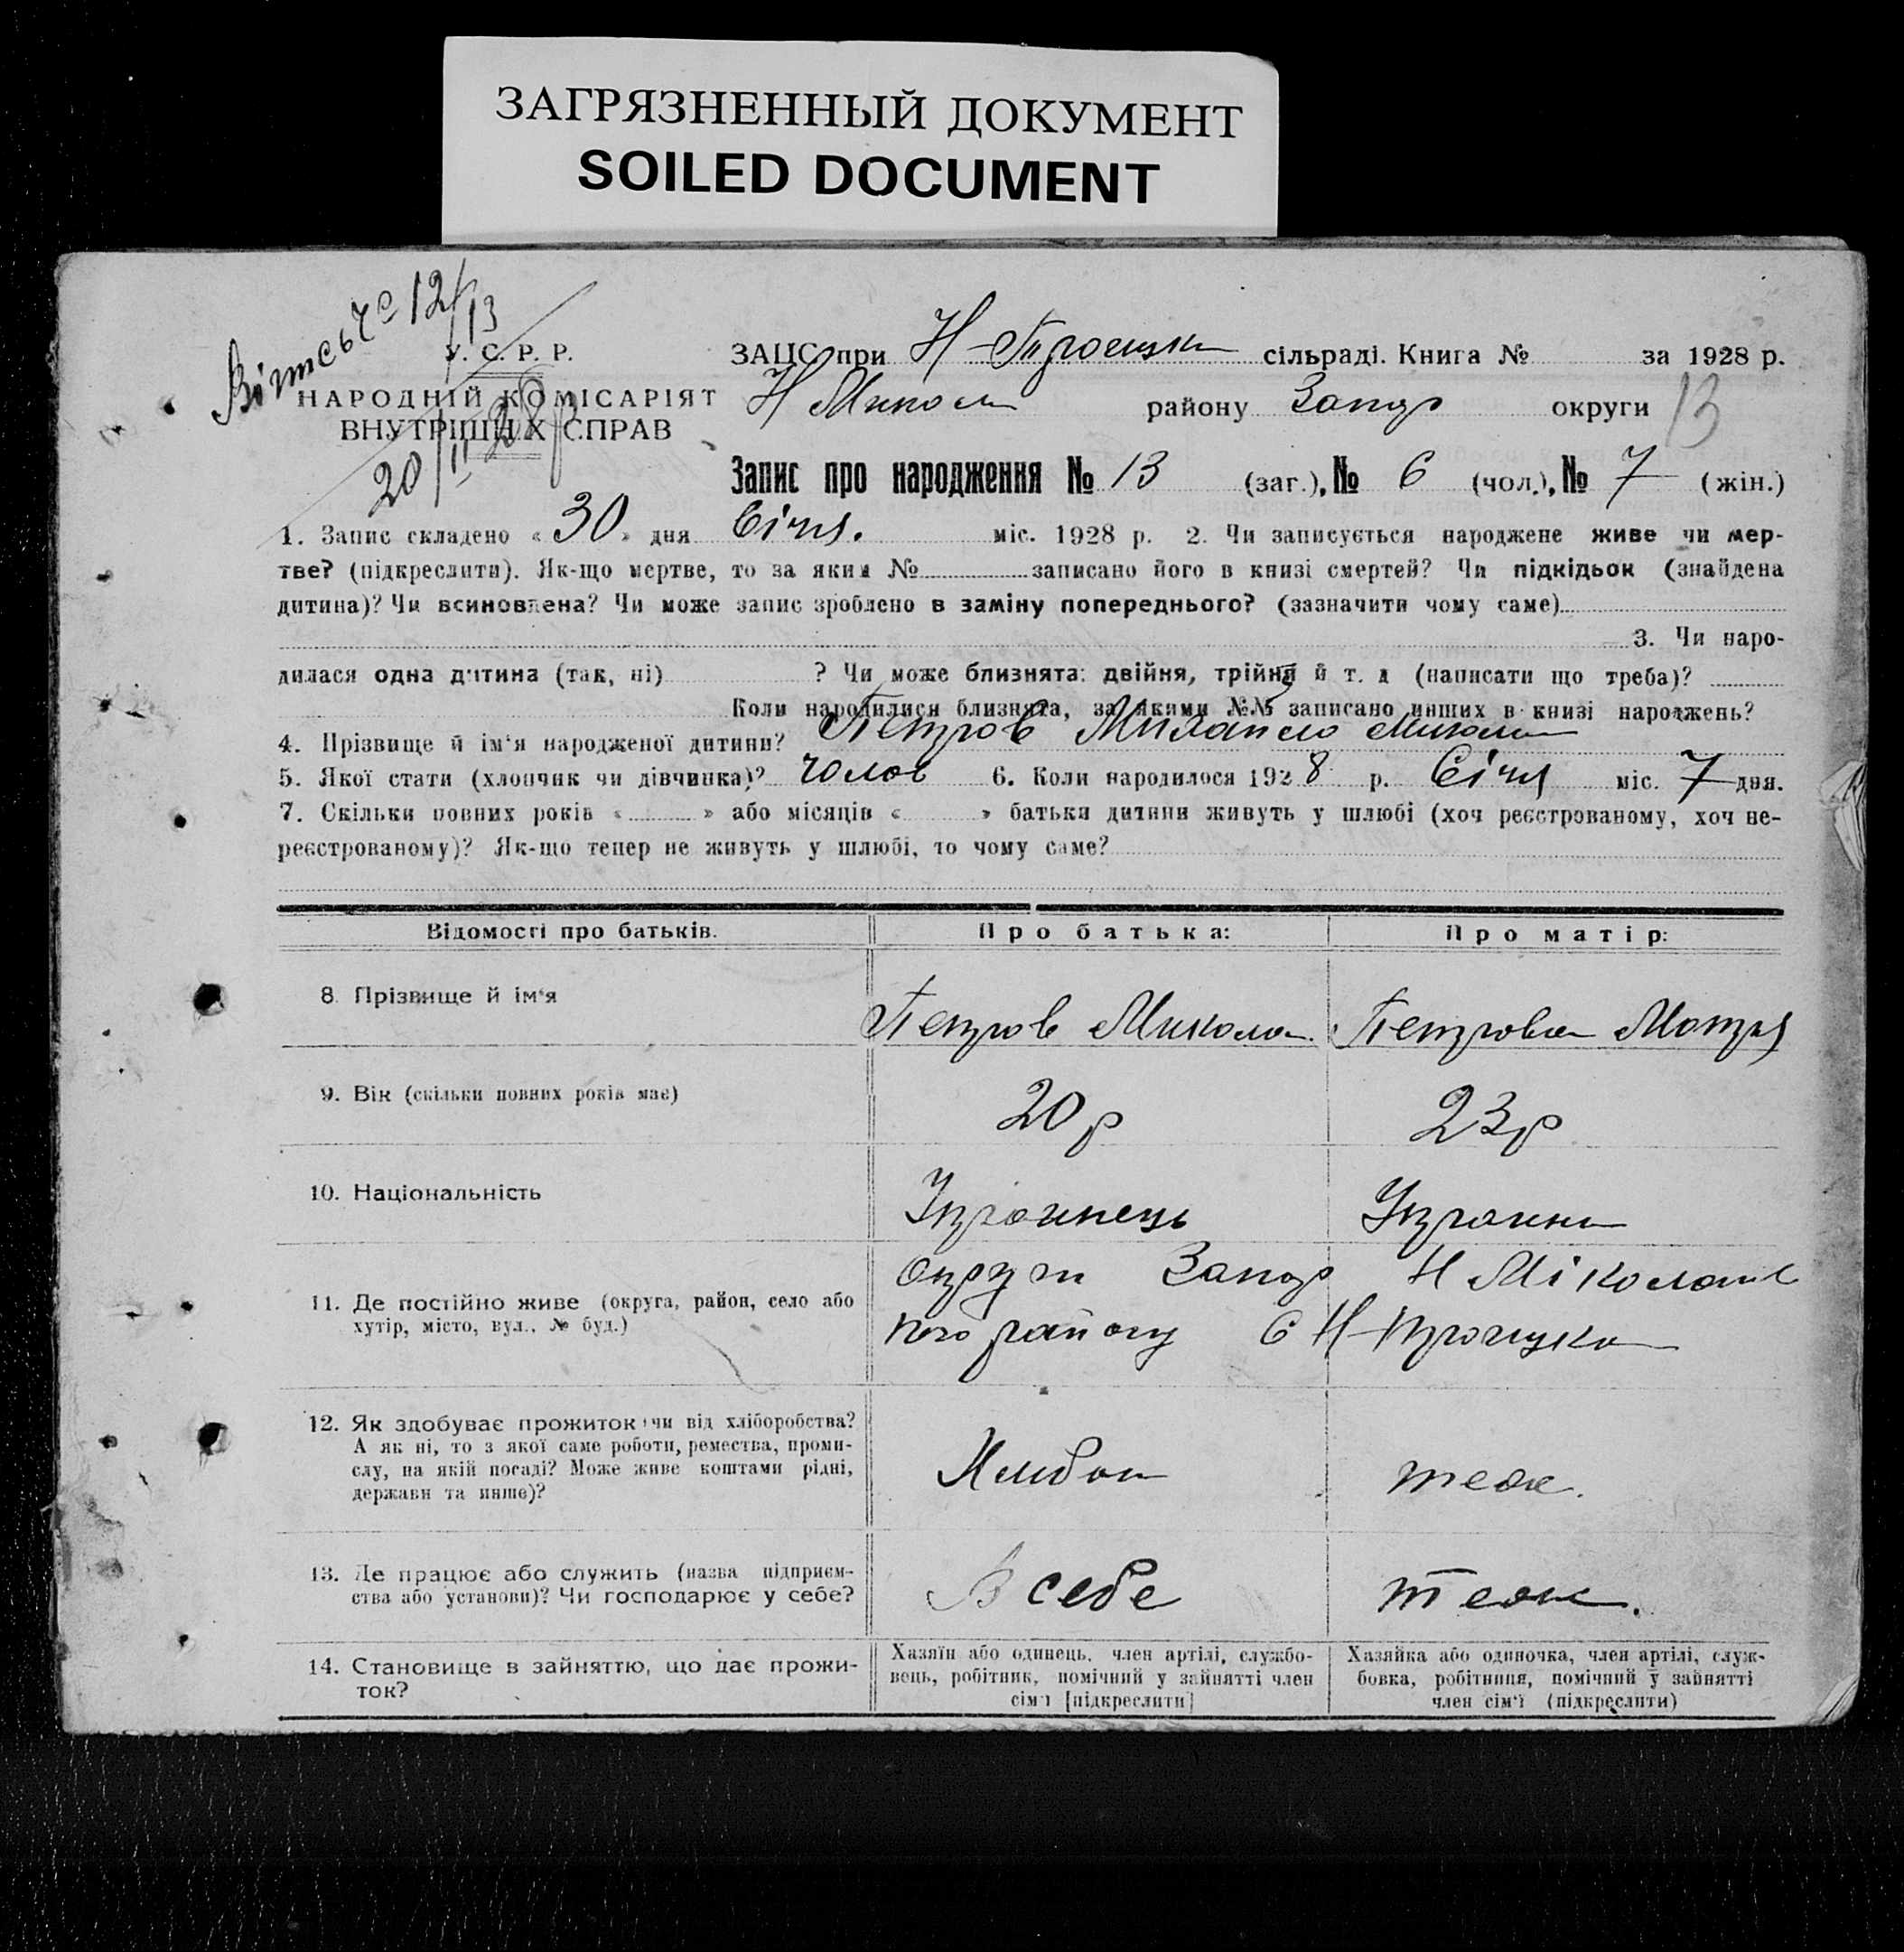 ЗАГРЯЗНЕННЫЙ ДОКУМЕНТ
SOILED DOCUMENT
12/13
У. С. Р. Р.
НАРОДНІЙ КОМІСАРІЯТ
ВНУТРІШНІХ СПРАВ
20/II 28р
ЗАЦС при Н-Троецька сільраді. Книга № за 1928 р.
Н Микол району Запор округи 13
Запис про народження № 13 (заг.), № 6 (чол.), № 7 (жін.)
1. Запис складено « 30 » дня Січня. міс. 1928 р. 2. Чи записується народжене живе чи мер-
тве? (підкреслити). Як-що мертве, то за яким № записано його в книзі смертей? Чи підкідьок (знайдена
дитина)? Чи всиновлена? Чи може запис зроблено в заміну попереднього? (зазначити чому саме)
3. Чи наро-
дилася одна дитина (так, ні) ? Чи може близнята: двійня, трійня й т. д (написати що треба)?
Коли народилися близнята, за якими №№ записано инших в книзі народжень?
4. Прізвище й ім'я народженої дитини? Петров Михайло Микола
5. Якої стати (хлопчик чи дівчинка)? чолов 6. Коли народилося 1928 р. Січня міс. 7 дня.
7. Скільки повних років « » або місяців « » батьки дитини живуть у шлюбі (хоч реєстрованому, хоч не-
реєстрованому)? Як-що тепер не живуть у шлюбі, то чому саме?
Відомості про батьків. Про батька: Про матір:
8. Прізвище й ім'я Петров Микола. Петрова Мотря
9. Вік (скільки повних років має) 20р 23р
10. Національність Українець Україн
11. Де постійно живе (округа, район, село або
хутір, місто, вул., № буд.)
Округи Запор Н Міколаїв
ского району С Н-Троецька
12. Як здобуває прожиток: чи від хліборобства?
А як ні, то з якої саме роботи, ремества, проми-
слу, на якій посаді? Може живе коштами рідні,
держави та инше)?
Хлибоп теж.
13. Де працює або служить (назва підприєм-
ства або установи)? Чи господарює у себе?
В себе теж.
14. Становище в зайняттю, що дає прожи-
ток?
Хазяїн або одинець, член артілі, службо-
вець, робітник, помічний у зайнятті член
сім'ї [підкреслити]
Хазяйка або одиночка, член артілі, служ-
бовка, робітниця, помічний у зайнятті
член сім'ї (підкреслити)